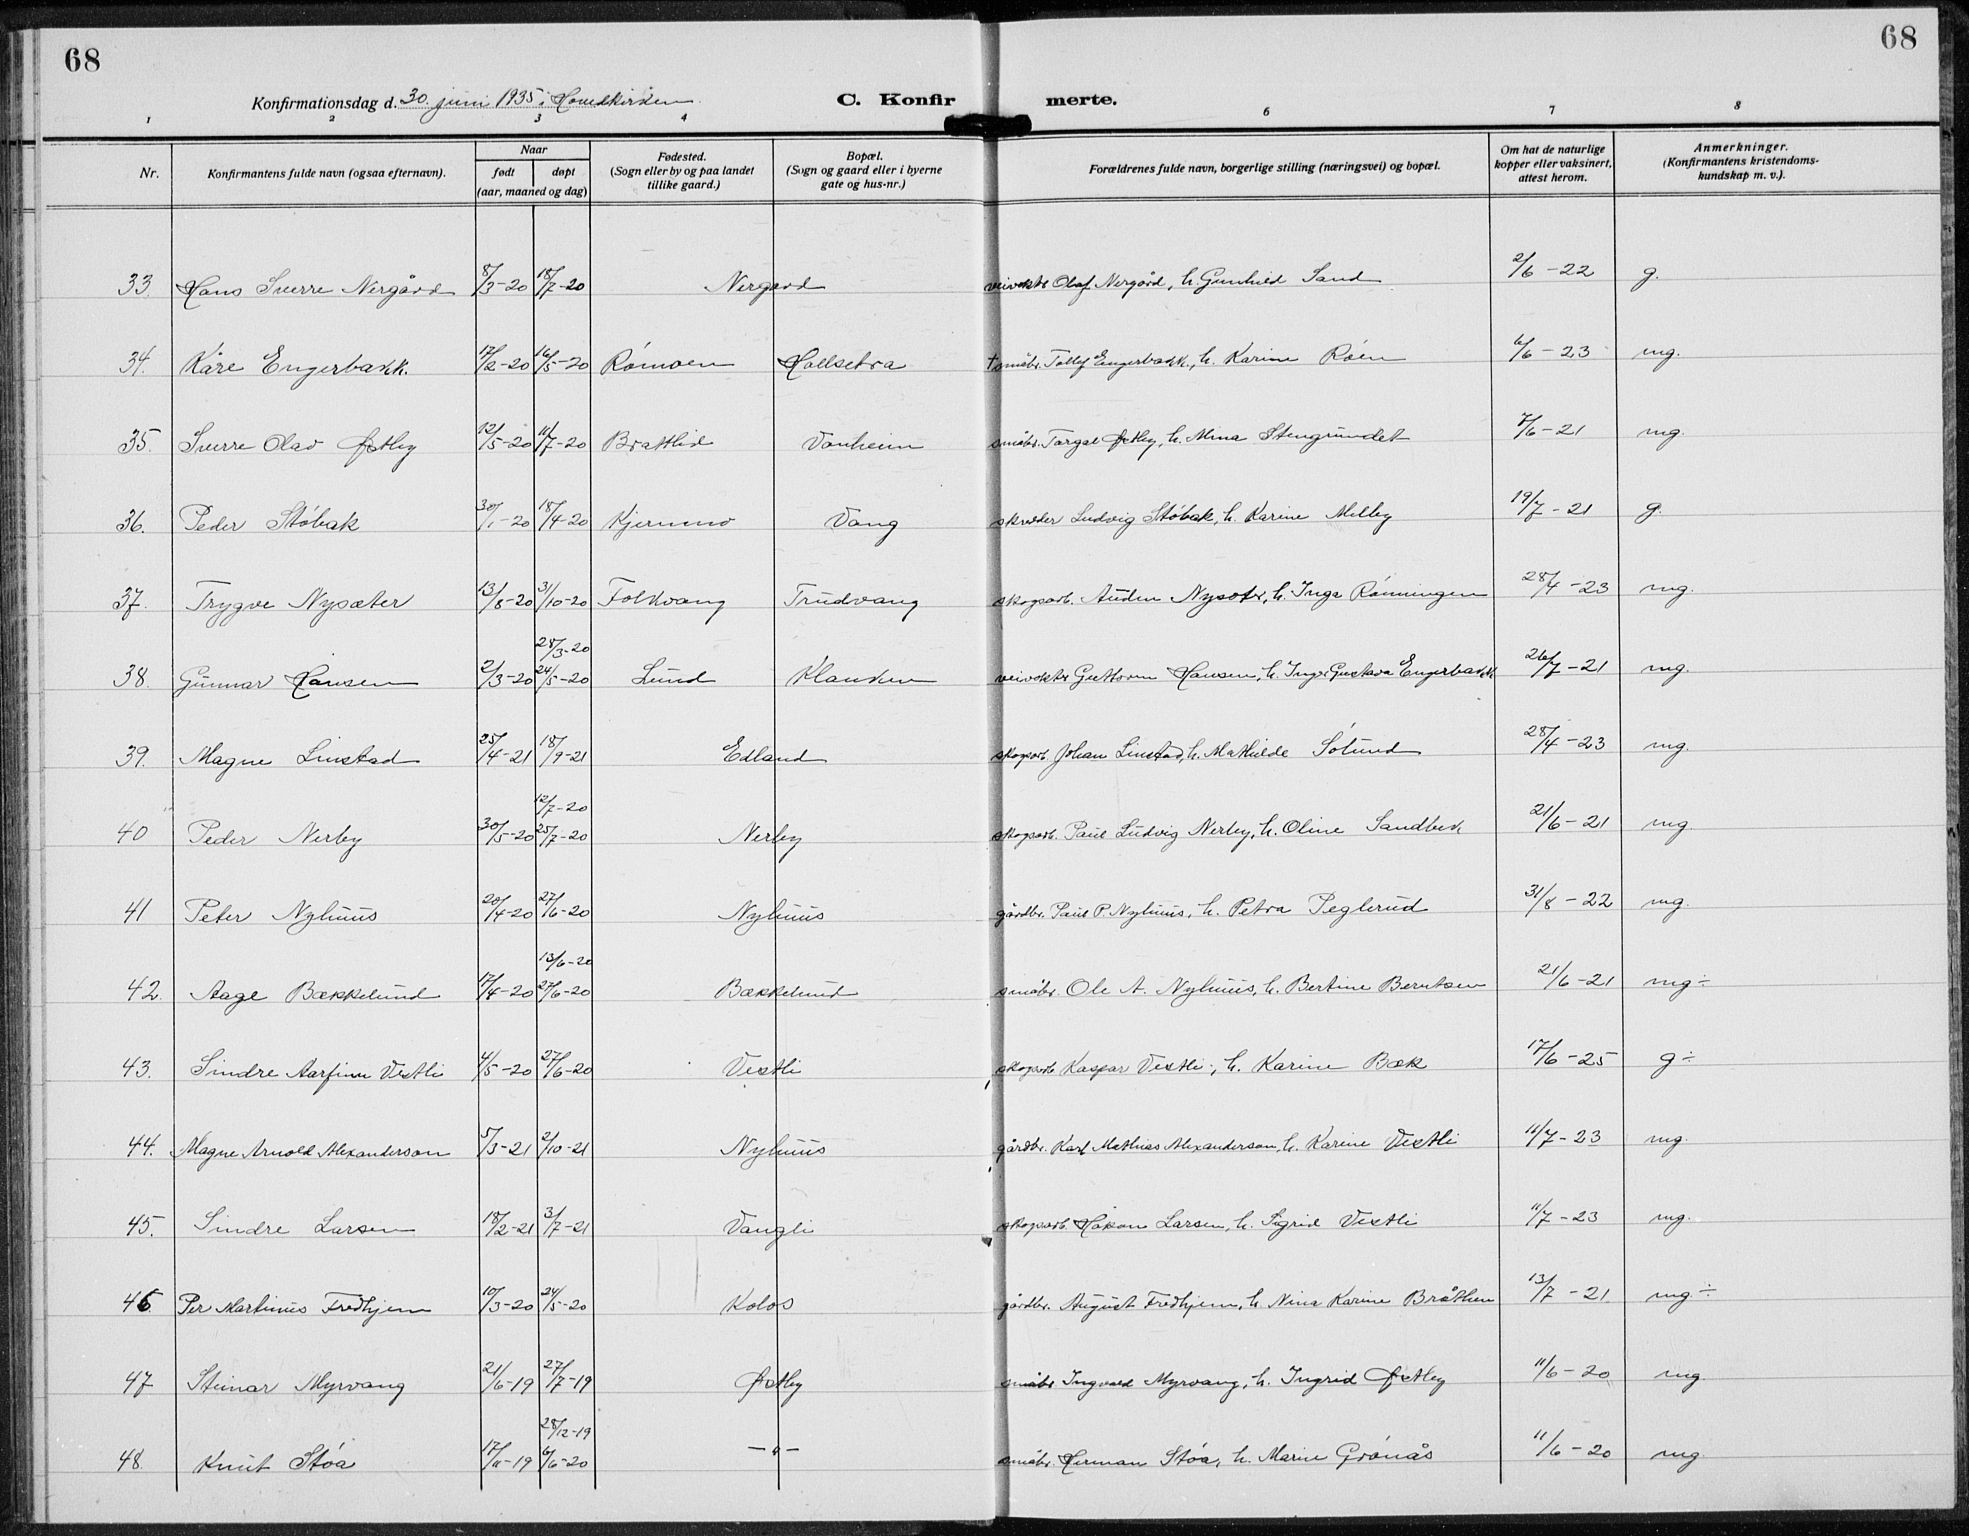 68 68
Konfirmationsdag d. 30. juni 1935 i Hovedkirken C. Konfirmerte.
1 2 3 4 6 7 8
Nr. Konfirmantens fulde navn (ogsaa efternavn). Naar født døpt (aar, maaned og dag) Fødested. (Sogn eller by og paa landet tillike gaard.) Bopæl. (Sogn og gaard eller i byerne gate og hus-nr.) Forældrenes fulde navn, borgerlige stilling (næringsvei) og bopæl. Om hat de naturlige kopper eller vaksinert, attest herom. Anmerkninger. (Konfirmantens kristendomskundskap m. v.).
33. Hans Sverre Nergård 8/3-20 18/7-20 Nergård veivokter Olaf Nergård, h. Gunhild Sand 2/6-22 g.
34. Kåre Engerbakk. 17/2-20 16/5-20 Rømoen Hollsetra † småbr. Tollef Engerbakk, h. Karine Røen 6/6-23 mg.
35. Sverre Olav Østby 12/5-20 11/7-20 Brattlid Vonheim småbr. Torgal Østby, h. Mina Stengrundet 7/6-21 mg.
36. Peder Støbak 30/1-20 18/4-20 Kjernmo Vang skredder Ludvig Støbak, h. Karine Melby 19/7-21 g.
37. Trygve Nysæter 13/8-20 3/10-20 Folkvang Trudvang skogsarb. Auden Nysæter, h. Inga Rønningen 28/4-23 mg.
28/3-20
38. Gunnar Hansen 2/3-20 24/5-20 Lund Klanken veivokter Guttorm Hansen, h. Inga Gustava Engerbakk 26/7-21 mg.
39. Magne Linstad 25/4-21 18/9-21 Edland skogsarb. Johan Linstad, h. Mathilde Sølund 28/4-23 mg.
12/7-20
40 Peder Nerby 30/5-20 25/7-20 Nerby skogsarb. Paul Ludvig Nerby, h. Oline Sandbek 21/6-21 mg.
41 Peter Nyhuus 20/4-20 27/6-20 Nyhuus gårdbr. Paul P. Nyhuus, h. Petra Peglerud 31/8-22 mg.
13/6-20
42. Aage Bækkelund 17/4-20 27/6-20 Bækkelund småbr. Ole A. Nyhuus, h. Bertine Berntsen 21/6-21 mg÷
43. Sindre Aarfinn Vestli 4/5-20 27/6-20 Vestli skogsarb. Kaspar Vestli, h. Karine Bæk 17/6-25 g÷
44. Magne Arnold Alexanderson 5/3-21 2/10-21 Nyhuus gårdbr. Karl Mathias Alexanderson, h. Karine Vestli 11/7-23 mg.
45. Sindre Larsen 18/2-21 3/7-21 Vangli skogsarb. Håkon Larsen, h. Sigrid Vestli 11/7-23 mg.
46. Per Martinius Fredhjem 10/3-20 24/5-20 Kolos gårdbr. August Fredhjem, h. Nina Karine Bråthen 13/7-21 mg÷
47 Steinar Myrvang 21/6-19 27/7-19 Østby småbr. Ingvald Myrvang, h. Ingrid Østby 11/6-20 mg
28/12-19
48. Knut Støa 17/11-19 6/6-20 —"— småbr. Herman Støa, h. Marie Grønås 11/6-20 mg